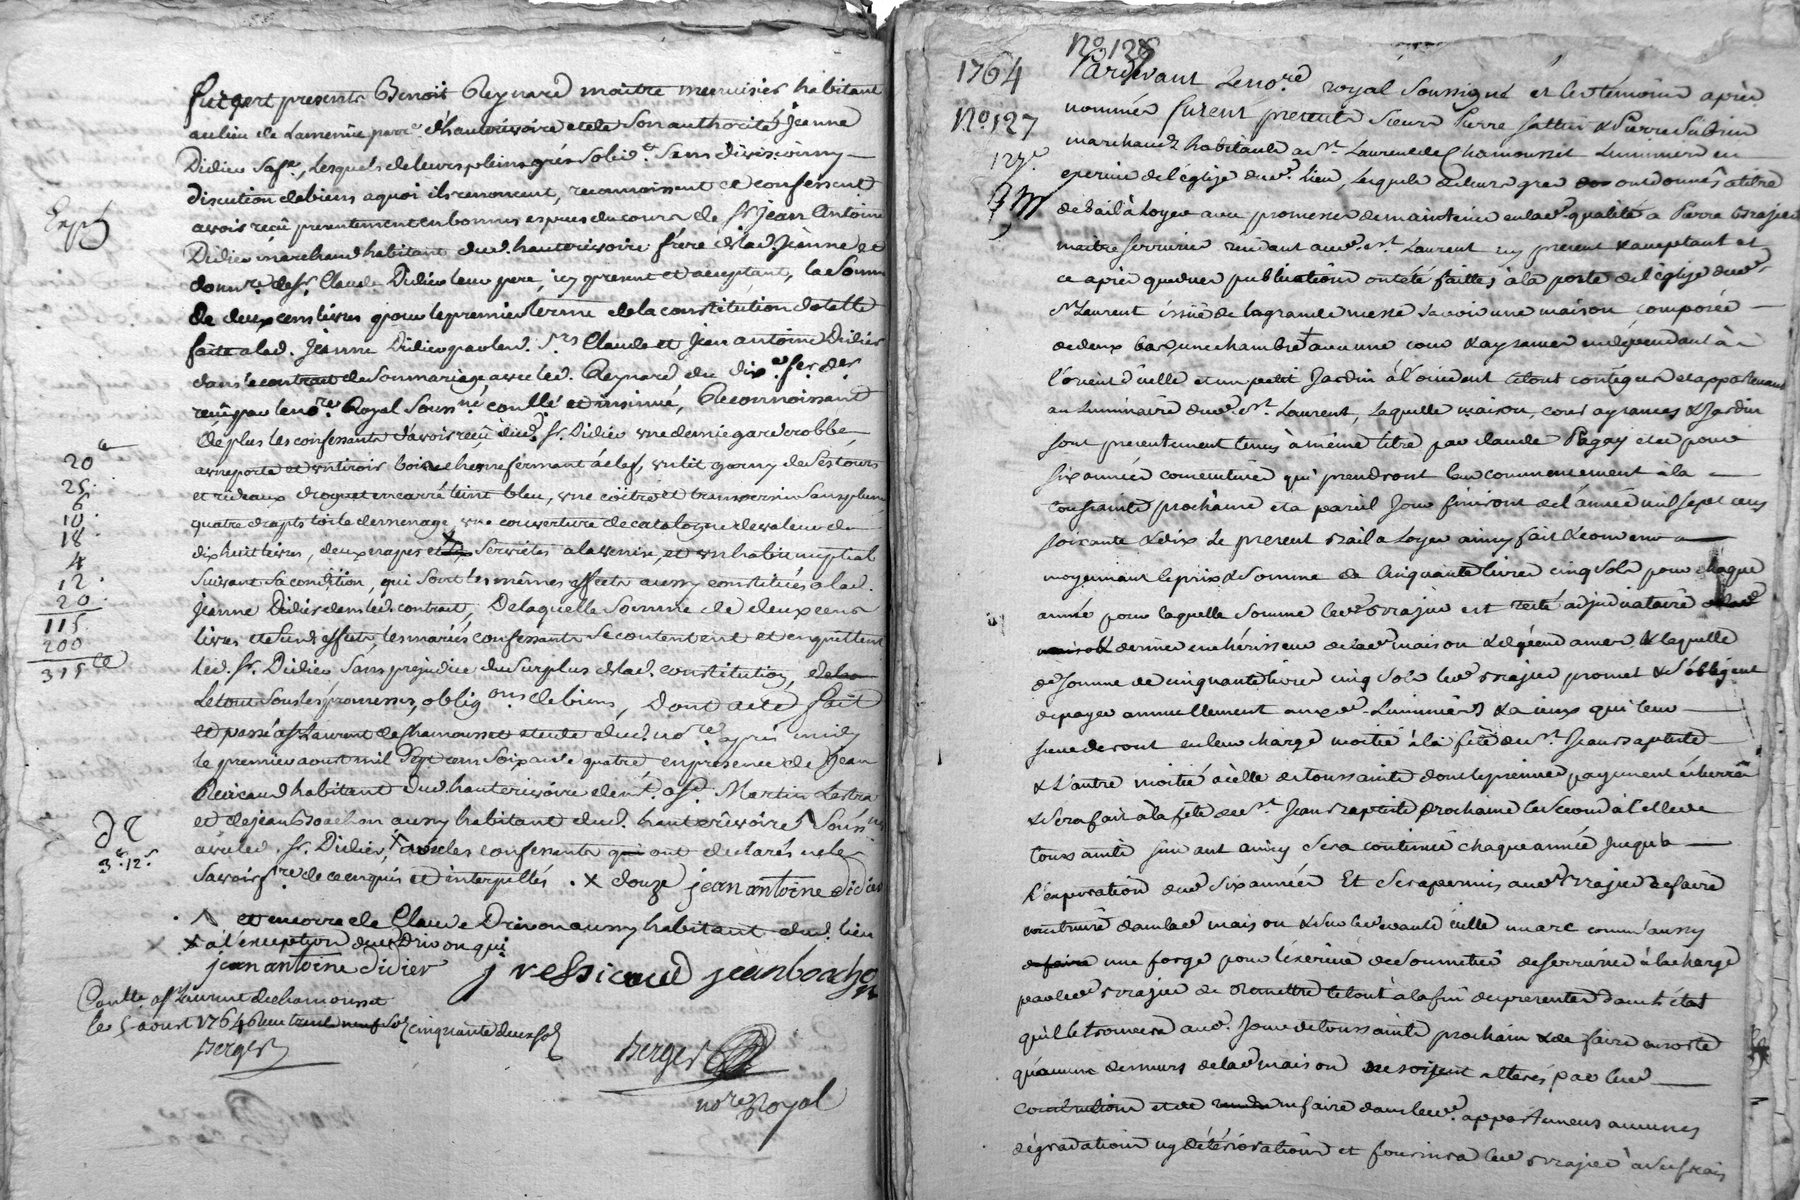 furent presents Benoit Reynard maitre menuisier habitant
au lieu de Lamenue parr.e d'hauterivoire et de son authorité Jeanne
Didier sa fe., lesquels de leurs pleins grés solid.t sans division ny
discution de biens a quoi ils renoncent, reconnoissent et confessent
Exp
avoir reçu presentement en bonnes especes du cours de Sr. Jean Antoine
Didier marchand habitant dud. hauterivoire frére de lad. Jeanne et
donn.re de Sr. Claude Didier leur pere, icy present et acceptant, la somme
de deux cens livres pour le premier terme de la constitution dotalle
faite a lad. Jeanne Didier par led. Srs Claude et Jean antoine Didier
dans le contrait de son mariage avec led. Reynard du dix
reçu par le no.re Royal souss.né conllé et insinué, Reconnoissant
de plus les confessants d'avoir reçu dud. Sr. Didier une demie garderobbe
20
a une porte et un tiroir bois de chesne fermant à clef, un lit garny de ses tours
25.
et rideaux droguet en carré teint bleu, une coitre et traversin sans plume
6
10.
quatre drapts toile de menage, une couverture de catalogne de valeur de
18
dix huit livres, deux napes et six serviettes a la venise, et un habit nuptial
4
suivant sa condition, qui sont les mêmes effects aussy constitués a lad.
12.
Jeanne Didier dans led. contrait, De laquelle somme de deux cens
20.
115.
livres et desd. effects, les mariés confessants se contentent et en quittent
200
315
led. Sr. Didier sans prejudice du surplus de lad. constitution,
Le tout sous les promesses, oblig.ons de biens, Dont acte fait
et passé a St. Laurent de Chamousset etude dud. no.re après midy
le premier aoust mil sept cens soixante quatre en presence de Jean
Ressicaud habitant dud. hauterivoire
et de jean Boachon aussy habitant dud. hauterivoire souss.nés
avec led. Sr. Didier, et non les confessants qui ont declarés ne le
3 12
savoir f.re de ce enquis et interpellés . x douze jean antoine didier
et encorre de Claude Drivon aussy habitant dud. lieu
x a l'exception dud. Drivon qui
jean antoine didier j ressicaud jean boachon
Conllé a St. Laurent de chamousset
le 5 aoust 1764 Reçu trente neuf sols cinquante deux sols
Berger
Berger
no.re Royal
No. 128
1764
Pardevant le no.re royal soussigné et les témoins aprés
No. 127
nommés furent presents Sieurs Pierre
marchands habitants a St. Laurent de Chamousset Luminiers en
exercice de l'église dud. lieu, lesquels de leurs gres ont donnés a titre
de bail à loyer avec promesse de maintenir en lad. qualité a Pierre Brajeu
maitre serrurier résidant aud. St. Laurent icy present & acceptant et
ce aprés que due publication ont été faittes à la porte de l'église dud.
St. Laurent issüe de la grande messe savoir une maison composée
de deux bas, une chambre avec une cour & aysances en dependant à
l'orient d'icelle et un petit Jardin à l'occident le tout contigus et appartenant
au luminaire dud. St. Laurent, laquelle maison, cour aysances & Jardin
sont presentement tenus à même titre par claude Pagay et ce pour
six années consecutives qui prendront leur commencement à la
toussainte prochaine et a pareil jour finiront de l'année mil sept cens
soixante & dix le present bail a loyer ainsy fait & convenu
moyennant le prix & somme de cinquante livres cinq sols pour chaque
année pour laquelle somme led. Brajeu est resté adjudicataire
dernier encherisseur de lad. maison & dependances & laquelle
de somme de cinquante livres cinq sols led. Brajeu promet & s'obligent
de payer annuellement auxd. Luminiers & a ceux qui leur
succederont en leur charge moitié à la fête de St. Jean baptiste
& l'autre moitié à celle de toussainte dont le premier payement écherra
& sera fait à la fête de St. Jean Baptiste prochaine le second à celle de
toussainte suivant ainsy sera continué chaque année jusqu'à
l'expiration desd. six années Et sera permis aud. Brajeu de faire
construire dans lad. maison
une forge pour l'éxercice de son metier de serrurier à la charge
par led. Brajeu de Remettre le tout à la fin des presentes dans l'état
qu'il le trouvera aud. Jour de toussainte prochain & de faire en sorte
qu'aucuns des murs de lad. maison ne soijent alterés par lad.
construction et de ne faire dans led. appartemens aucunes
dégradations ny détériorations et fournira led. Brajeu à ses frais